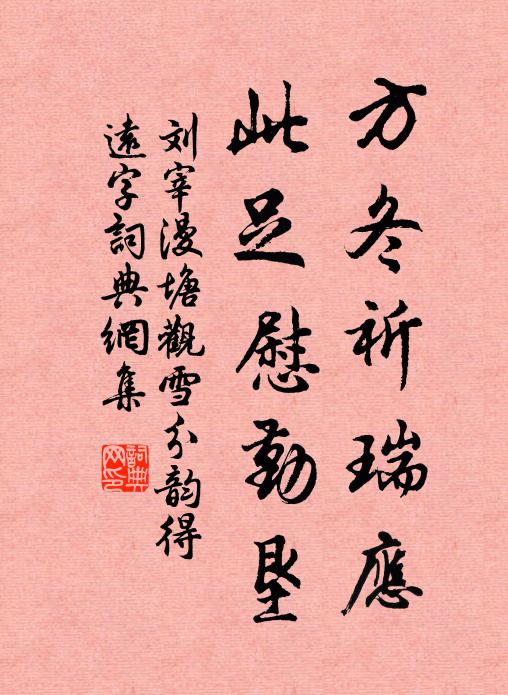 方冬祈瑞應
此足慰勤垦
刘宰漫塘觀雪分韵得
遠字詞典網集
詞典网印